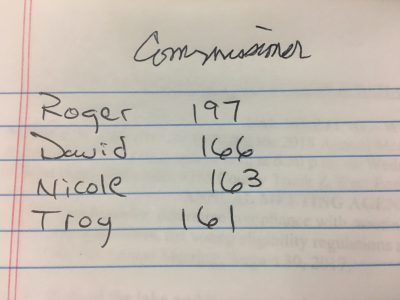 Commissioner
Roger 197
David 166
Nicole 163
Troy 161